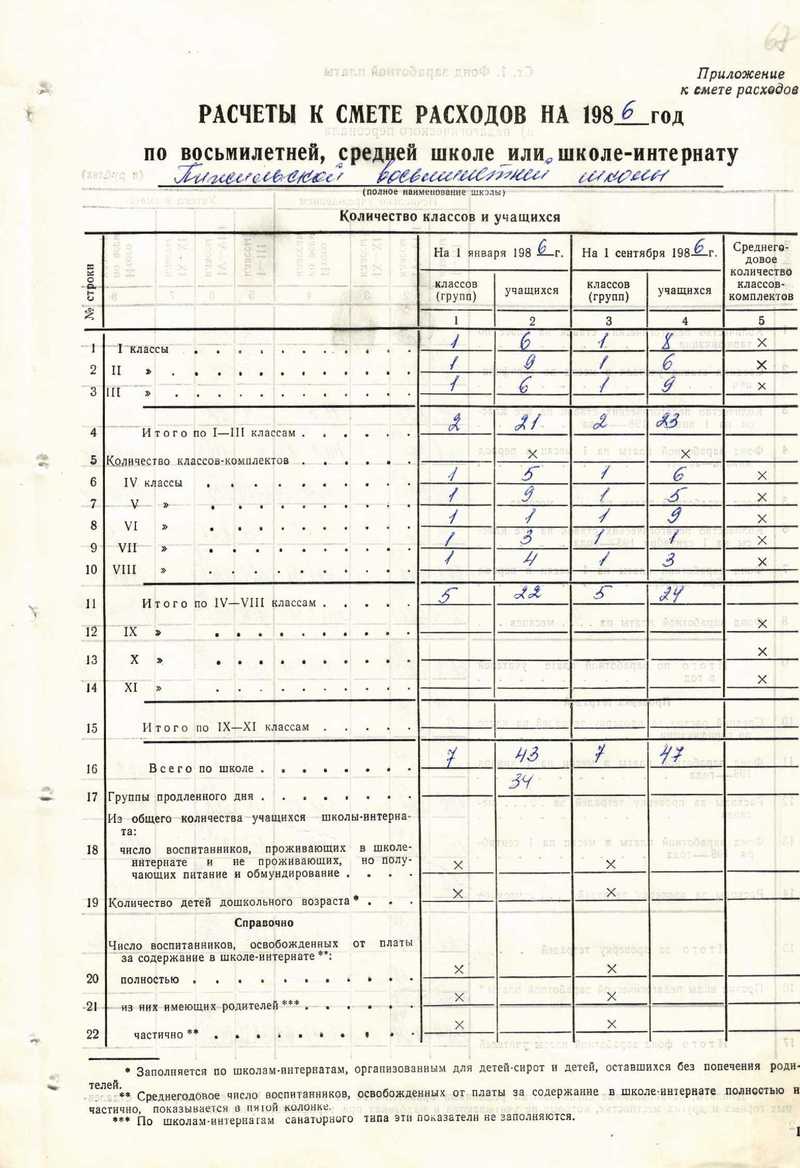 67
Приложение
к смете расходов
РАСЧЕТЫ К СМЕТЕ РАСХОДОВ НА 1986 год
по восьмилетней, средней школе или школе-интернату
восьмилетней школы
(полное наименование школы)
Количество классов и учащихся
№ строки | На 1 января 1986 г. | На 1 сентября 1986 г. | Среднегодовое количество классов-комплектов
классов (групп) | учащихся | классов (групп) | учащихся
1 2 3 4 5
1 I классы 1 6 1 8 ×
2 II » 1 9 1 6 ×
3 III » 1 6 1 9 ×
4 Итого по I—III классам 2 21 2 23
5 Количество классов-комплектов × ×
6 IV классы 1 5 1 6 ×
7 V » 1 9 1 5 ×
8 VI » 1 1 1 9 ×
9 VII » 1 3 1 1 ×
10 VIII » 1 4 1 3 ×
11 Итого по IV—VIII классам 5 22 5 24
12 IX » ×
13 X » ×
14 XI » ×
15 Итого по IX—XI классам
16 Всего по школе 7 43 7 47
17 Группы продленного дня 34
Из общего количества учащихся школы-интерна-
та:
18 число воспитанников, проживающих в школе-
интернате и не проживающих, но полу-
чающих питание и обмундирование × ×
19 Количество детей дошкольного возраста * × ×
Справочно
Число воспитанников, освобожденных от платы
за содержание в школе-интернате **:
20 полностью × ×
21 из них имеющих родителей *** × ×
22 частично ** × ×
* Заполняется по школам-интернатам, организованным для детей-сирот и детей, оставшихся без попечения роди-
телей.
** Среднегодовое число воспитанников, освобожденных от платы за содержание в школе-интернате полностью и
частично, показывается в пятой колонке.
*** По школам-интернатам санаторного типа эти показатели не заполняются.
1